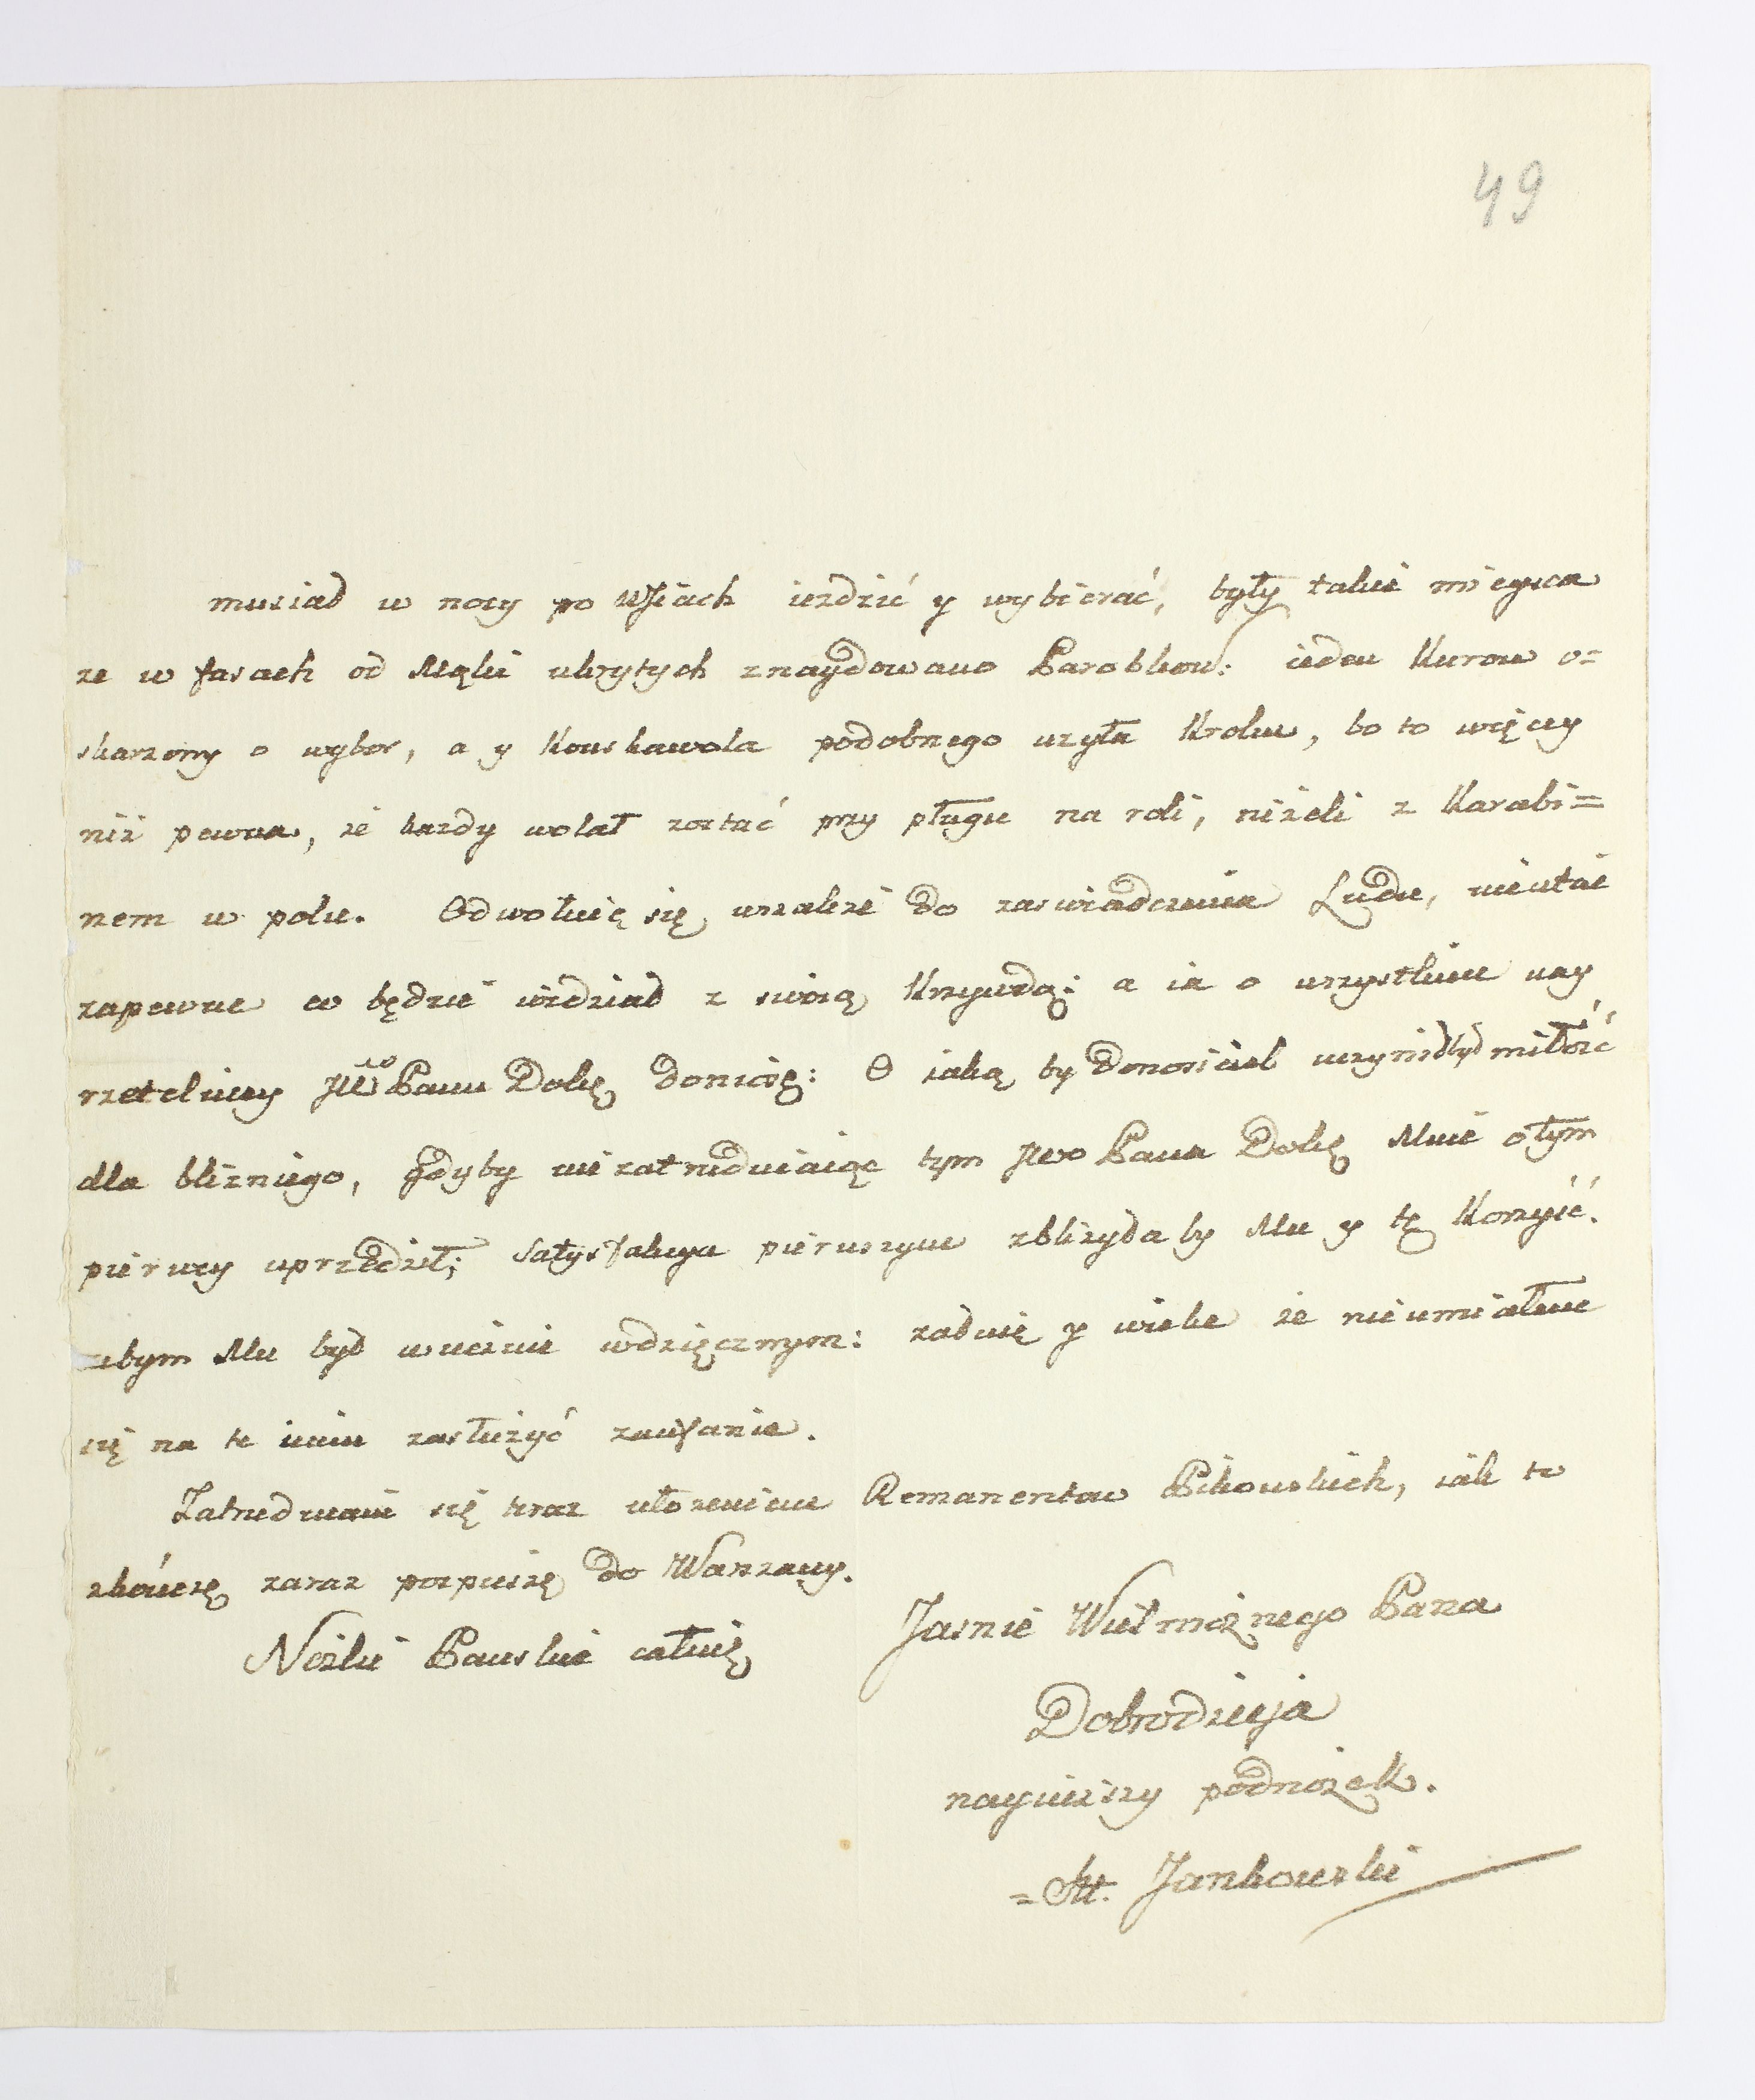 49
musiał w nocy po Wsiach iezdzić y wybierać, były takie mieysca
ze w fasach od Mąki ukrytych znaydowano Parobkow: ieden Kurow o=
skarzony o wybor, a y Konskawola podobnego uzyła Kroku, bo to więcy
niż pewna, że kazdy wolał zostać przy pługu na roli, niżeli z Karabi=
nem w polu. Odwołuię się wszakże do zaswiadczenia Ludu, nieutai
zapewne co będzie widział z swoią Krzywdą: a ia o wszystkim nay
rzetelniey JW Panu Dobę doniosę: O iaką by Donosiciel uczynił był miłość
dla bliźniego, Gdyby niezatrudniaiąc tym JWo Pana Dobę Mnie o tym
pierwey uprzedził; Satysfakcya pierwszym zbliżyła by Mu y tę Korzyść.
bym Mu był wiecznie wdzięcznym: załuię y wiele że nieumiałem
się na te imie zasłużyć zaufanie.
Zatrudniam się teraz ułożeniem Remanentow Pikowskich, iak to
skończę zaraz pospieszę do Warszawy.
Nóżki Pańskie całuię
Jasnie Wielmożnego Pana
Dobrodzieja
nayniższy podnożek.
= M. Jankowski